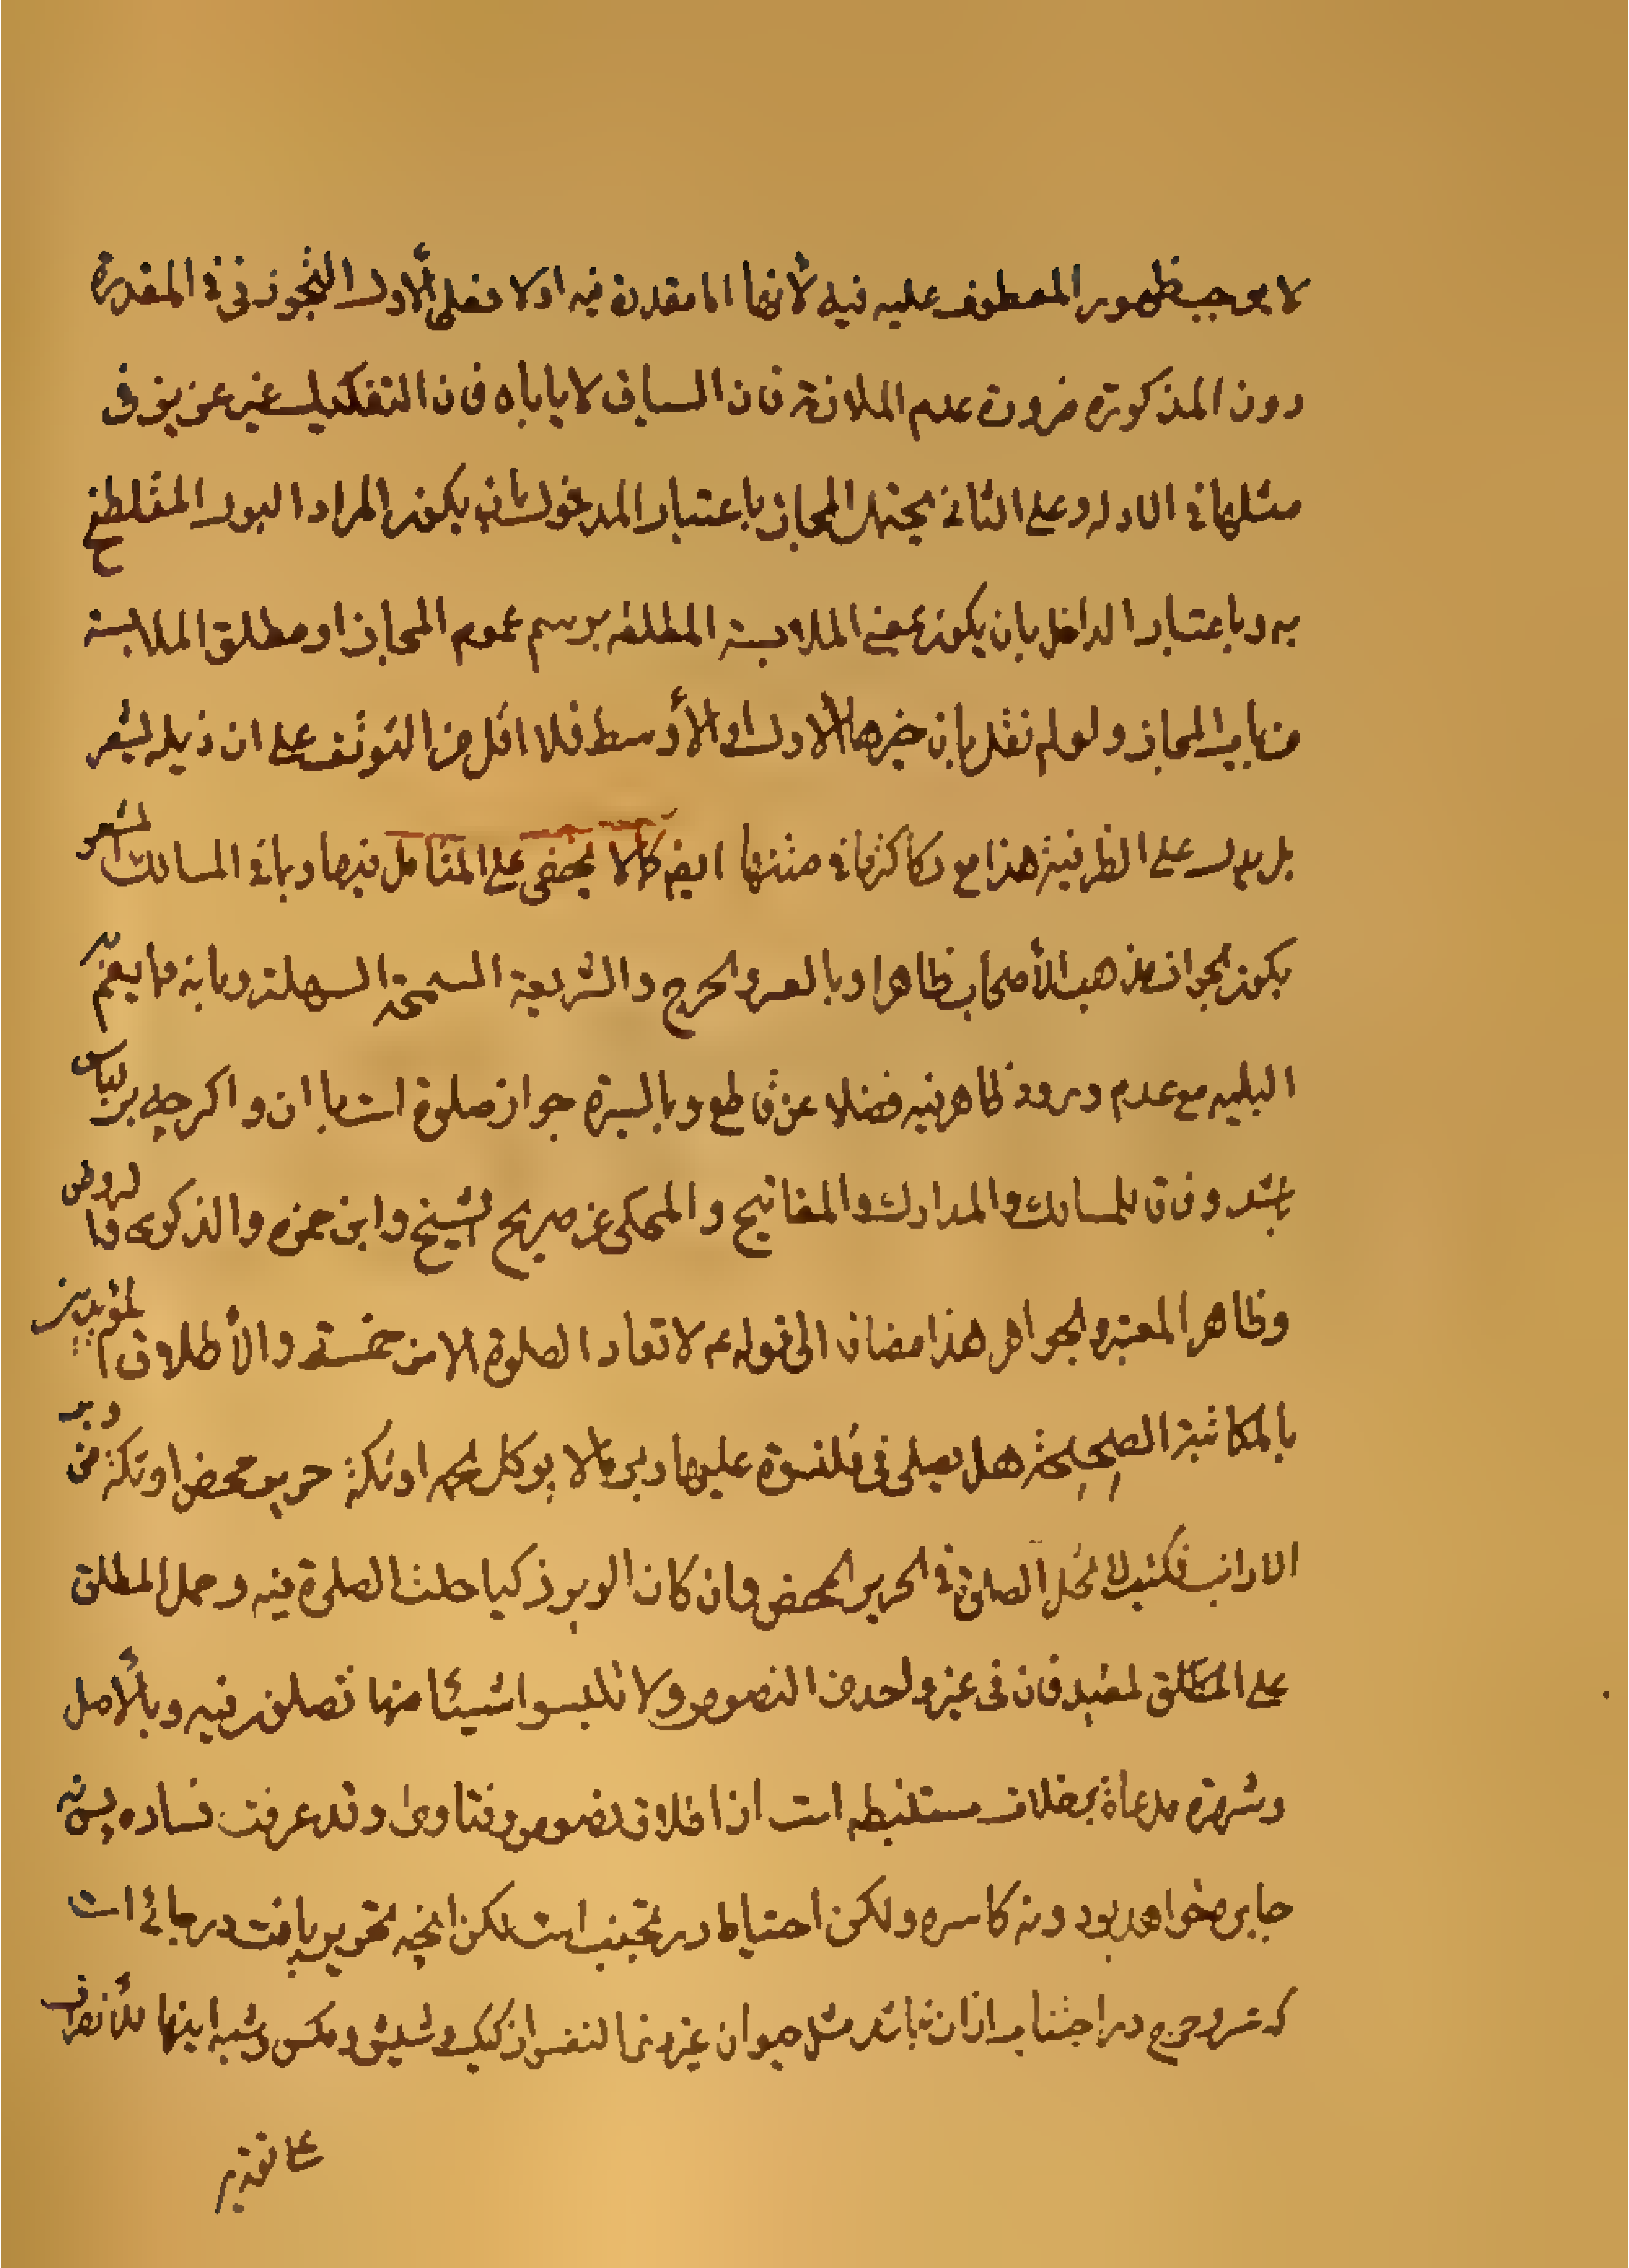 لا يوجب ظهور المعطوف عليه فيه لأنها اما مقدرة فيه اولا فعلى الأول التجوز في في المقدرة
دون المذكورة ضرورة عدم الملازمة فان السياق لا ياباه فان التفكيك غير عزيز فى
مثلها فى الادله وعلى الثانى يحتمل المجاز باعتبار المدخول بان يكون المراد البول المتلطخ
به وباعتبار الداخل بان يكون بمعنى الملابسة المطلقه برسم عموم المجاز او مطلق الملابسة
من باب المجاز ولو لم نقل بان خيرها الاول او الأوسط فلا اقل من التوقف على ان ذيله يشعر
بل يدل على الظرفية هذا مع ركاكة ما فى متنها ايضا كما لا يخفى على المتامل فيها وبما فى المسالك المشعر
بكون الجواز مذهب الأصحاب ظاهرا وبالعسر والحرج والشريعة السمحة السهلة وبانه مما يعم به
البليه مع عدم ورود ظاهر فيه فضلا عن قاطع وبالسيرة جواز صلوة است با ان و اكرچه بر لباس
باشد وفاقا للمسالك والمدارك والمفاتيح والمحكى عن صريح الشيخ وابن حمزه والذكرى والروض
وظاهر المعتبر والجواهر هذا مضافا الى قوله ع لا تعاد الصلوة الا من خمسة والأطلاق المؤيدين
بالمكاتبة الصحيحة هل يصلى فى قلنسوة عليها وبر ما لا يوكل لحمه او تكة حرير محض او تكة من وبر
الارانب فكتب لا تحل الصلوة فى الحرير المحض وان كان الوبر ذكيا حلت الصلوة فيه وحمل المطلق
على المطلق لمقيد فان فى غير واحد من النصوص ولا تلبسوا شيئا منها تصلون فيه وبالأصل
وشهرة مدعاة بخلاف مستنبطه است از اطلاق نصوص وفتاوى وقد عرفت فساده پس نه
جابر خواهد بود ونه كاسره ولكن احتياط در تجنب است لكن انچه تحرير يافت در جائى است
كه عسر وحرج در اجتناب از ان نباشد مثل حيوان غير ذى النفس از كيك وشپش ومكس وشبه اينها للأنصراف